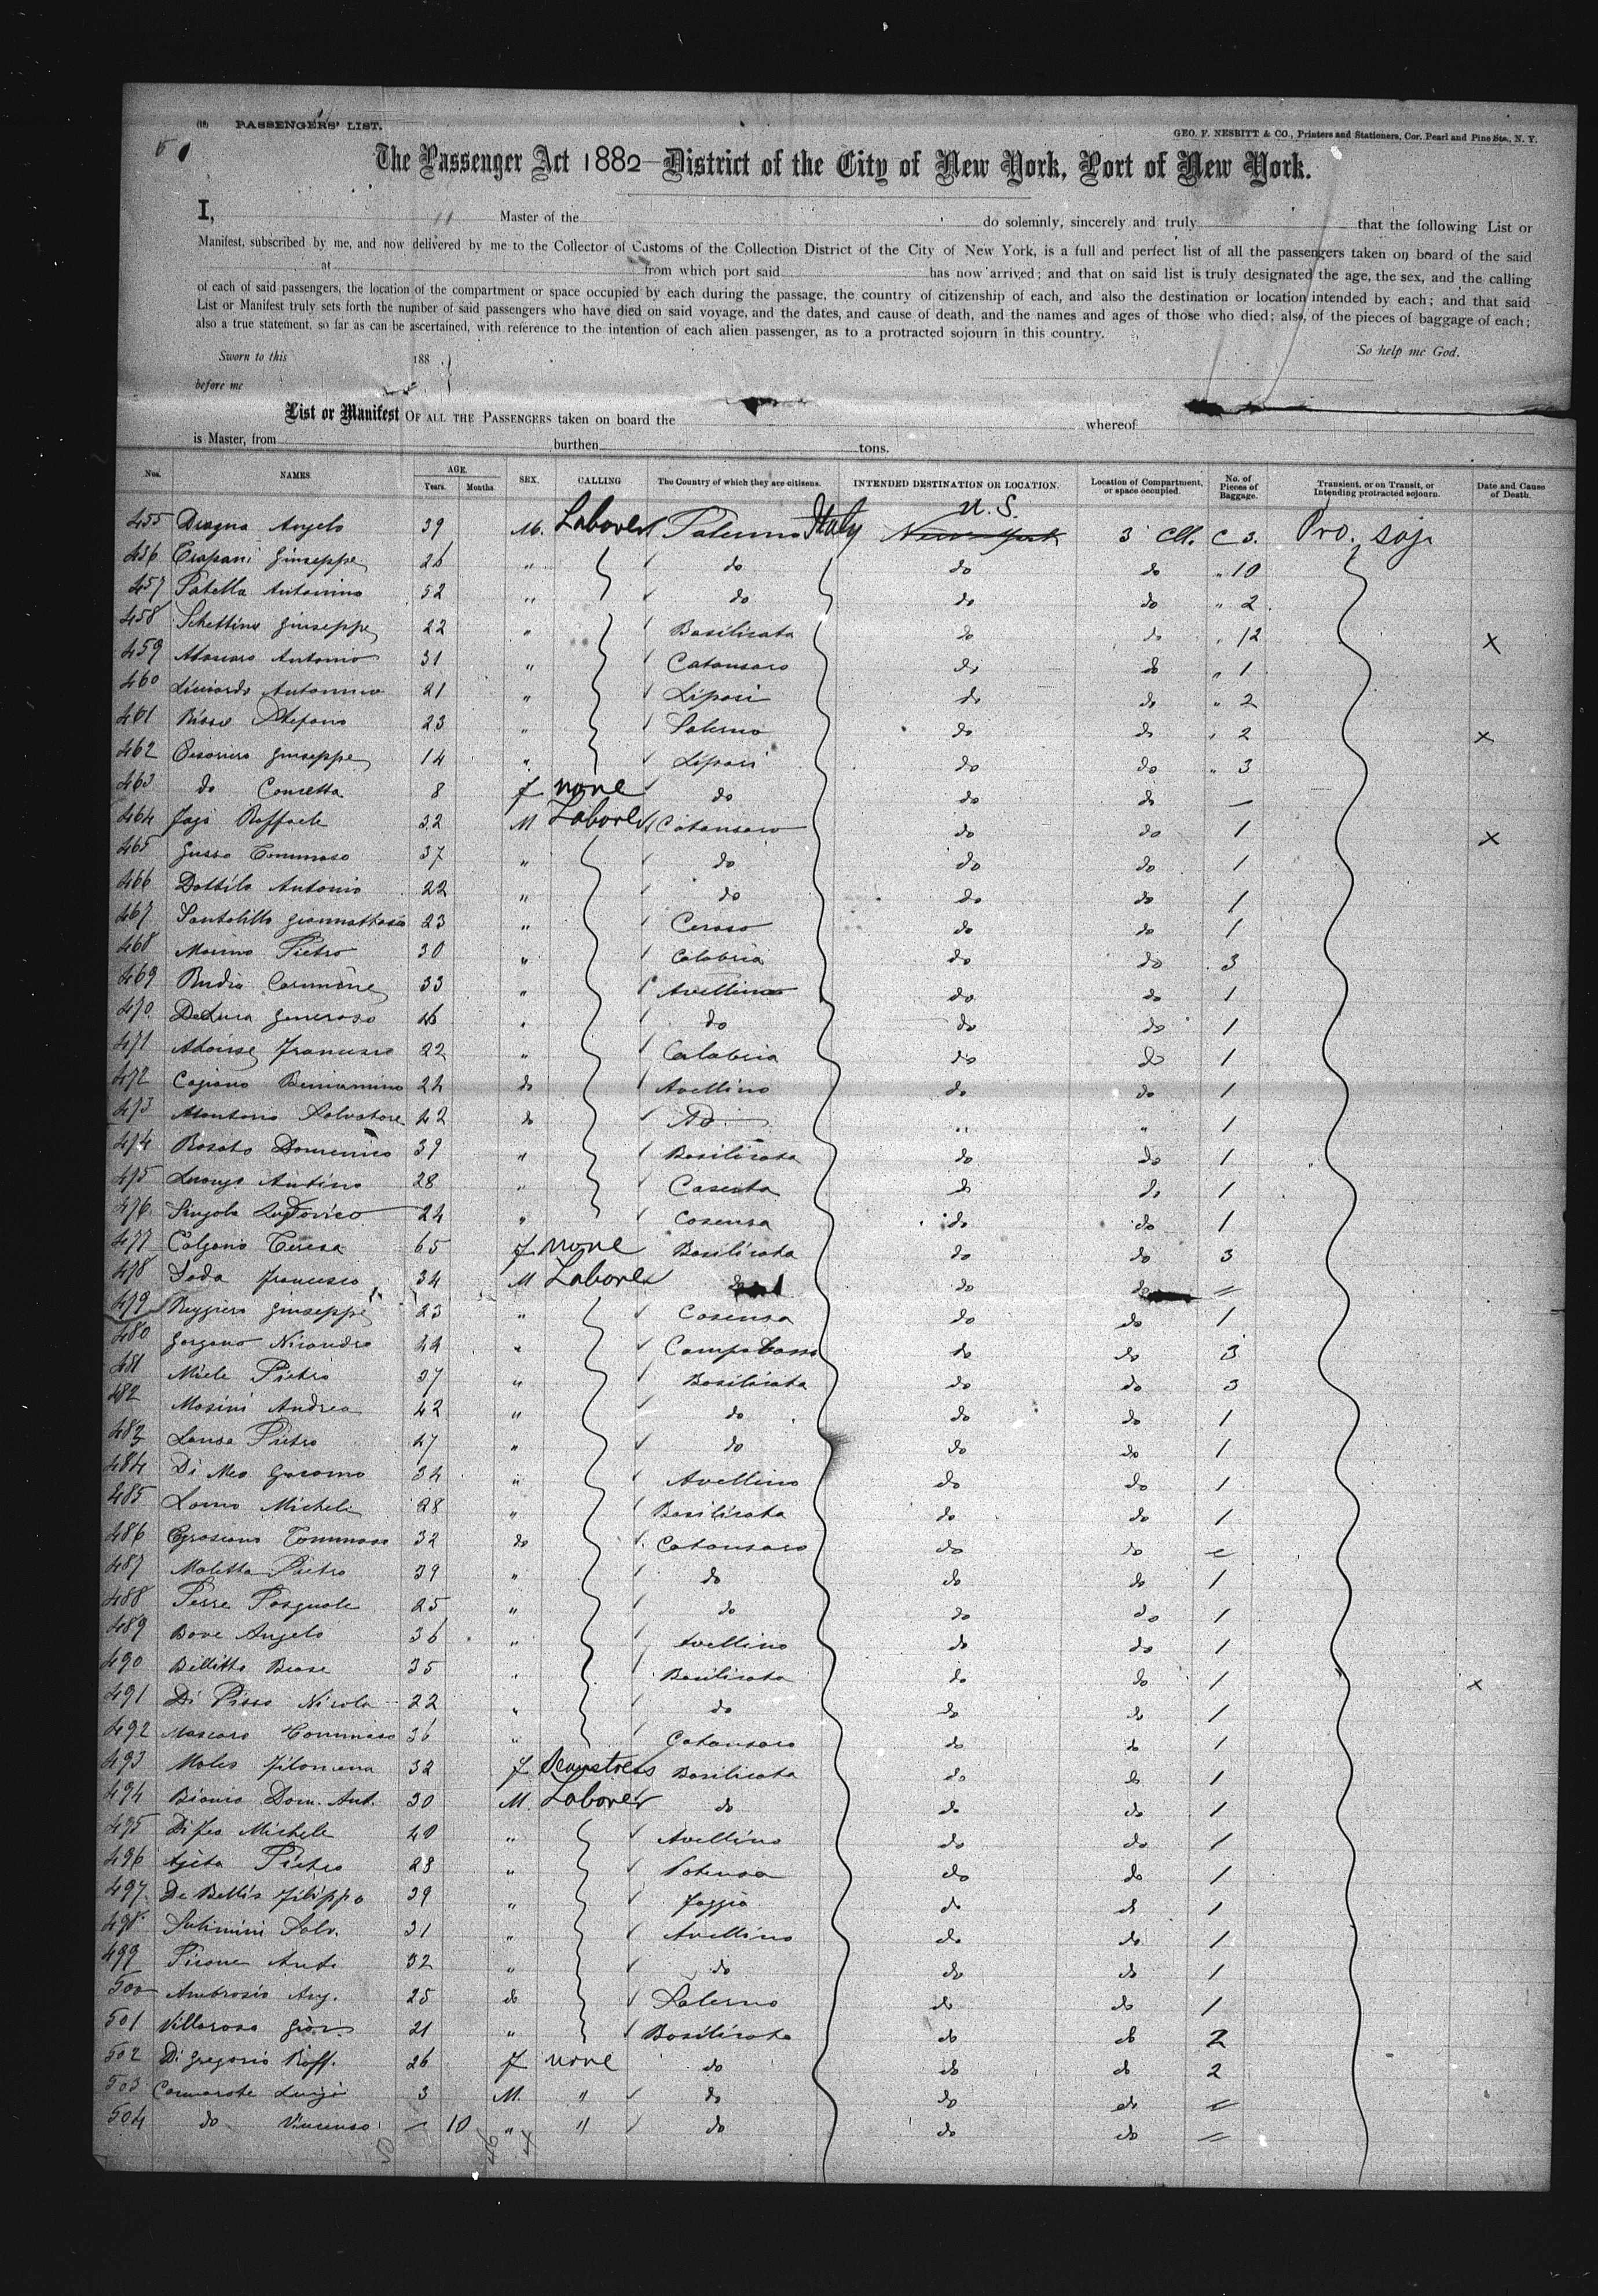 (18) PASSENGERS' LIST.
GEO. F. NESBITT & CO., Printers and Stationers, Cor. Pearl and Pine Sts., N. Y.
The Passenger Act 1882—District of the City of New York, Port of New York.
I, Master of the do solemnly, sincerely and truly that the following List or
Manifest, subscribed by me, and now delivered by me to the Collector of Customs of the Collection District of the City of New York, is a full and perfect list of all the passengers taken on board of the said
at from which port said has now arrived; and that on said list is truly designated the age, the sex, and the calling
of each of said passengers, the location of the compartment or space occupied by each during the passage, the country of citizenship of each, and also the destination or location intended by each; and that said
List or Manifest truly sets forth the number of said passengers who have died on said voyage, and the dates, and cause of death, and the names and ages of those who died; also, of the pieces of baggage of each;
also a true statement, so far as can be ascertained, with reference to the intention of each alien passenger, as to a protracted sojourn in this country. So help me God.
Sworn to this 188
before me
List or Manifest OF ALL THE PASSENGERS taken on board the whereof
is Master, from burthen tons.
Nos. NAMES AGE. Years. Months. SEX. CALLING The Country of which they are citizens. INTENDED DESTINATION OR LOCATION. Location of Compartment, or space occupied. No. of Pieces of Baggage. Transient, or on Transit, or Intending protracted sojourn. Date and Cause of Death.
U. S.
455 Dragna Angelo 39 M. Laborer Palermo Italy New York 3 C 3. Pro. soj.
456 Trapani Giuseppe 26 " do do do " 10
457 Patella Antonino 52 " do do do " 2
458 Schettino Giuseppe 22 " Basilicata do do " 12 x
459 Antonio 31 " Catanzaro do do " 1
460 Antonino 21 " Lipari do do " 2
461 Stefano 23 " Salerno do do " 2 x
462 Giuseppe 14 " Lipari do do " 3
463 do Concetta 8 F none do do do —
464 Raffaele 32 M Laborer Catanzaro do do 1 x
465 Tommaso 37 " do do do 1
466 Dattilo Antonio 22 " do do do 1
467 23 " do do 1
468 Marino Pietro 30 " Calabria do do 3
469 Carmine 33 " Avellino do do 1
470 DeLuca Generoso " do do do 1
471 Francesco 22 " Calabria do do 1
472 Beniamino 24 do Avellino do do 1
473 Salvatore 42 do do " " 1
474 Rosato Domenico 39 " Basilicata do do 1
475 28 " Caserta do do 1
476 Ludovico 24 " Cosenza do do 1
477 Teresa 65 F none Basilicata do do 3
478 Francesco 34 M Laborer do do =
479 Ruggiero Giuseppe 23 " Cosenza do do 1
480 Gargano Nicandro 44 " Campobasso do do 3
481 Miele Pietro 37 " Basilicata do do 3
482 Masini Andrea 42 " do do do 1
483 Pietro 47 " do do do 1
484 Di Meo Giacomo 34 " Avellino do do 1
485 Michele 28 " Basilicata do do 1
486 Tommaso 32 do Catanzaro do do =
487 Maletta Pietro 39 " do do do 1
488 Perre Pasquale 25 " do do do 1
489 Bove Angelo 36 " Avellino do do 1
490 Billitto 35 " Basilicata do do 1 x
491 Nicola 22 " do do do 1
492 Mascaro Tommaso 36 " Catanzaro do do 1
493 Moles Filomena 32 F Seamstress Basilicata do do 1
494 Dom. Ant. 30 M. Laborer do do do 1
495 Di Feo Michele 40 " Avellino do do 1
496 Pietro 28 " Potenza do do 1
497 De Bellis Filippo 39 " Foggia do do 1
498 Salv. 31 " Avellino do do 1
499 32 " do do do 1
500 Ambrosio Ang. 25 do Salerno do do 1
501 Villarosa 21 " Basilicata do do 2
502 Di Gregorio Raff. 26 F none do do do 2
503 Cammarota Luigi 3 M. " do do do =
504 do Vincenzo — 10 " " do do do =